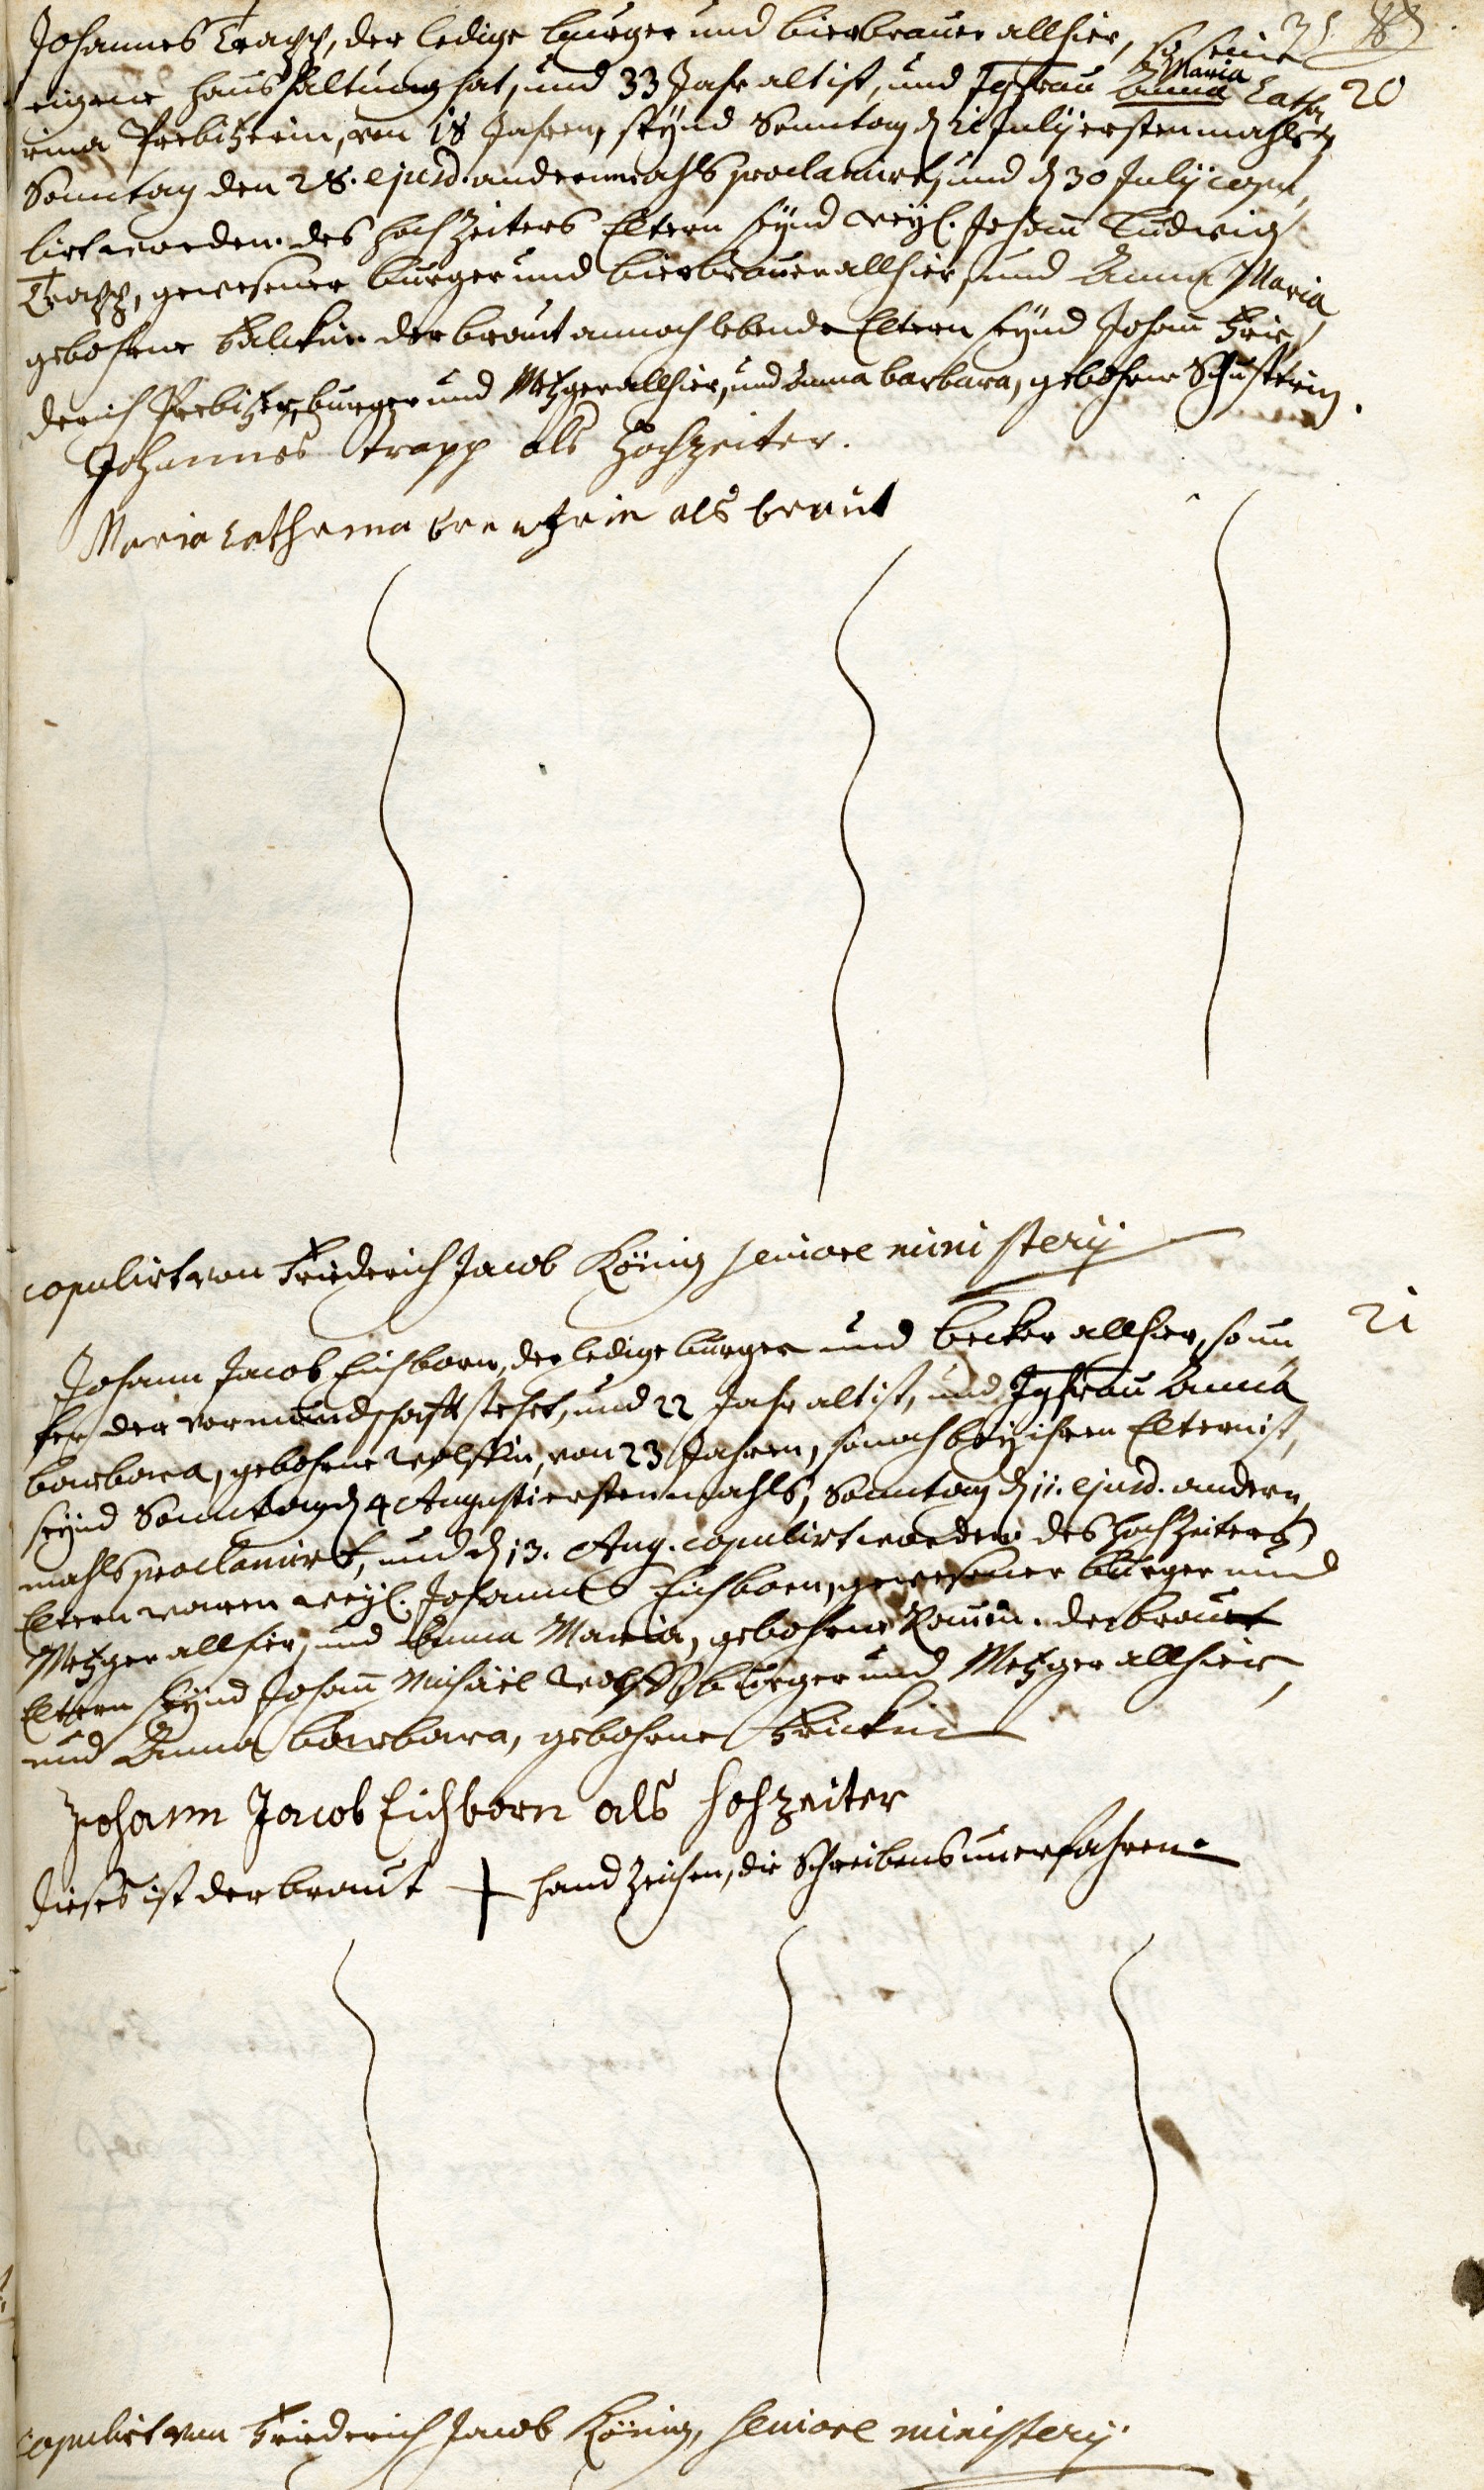 Johannes Trapp, der ledige burger und bierbrauer allhier, so seine
eigene haußhaltung hat, und 33 Jahr alt ist, und Jgfrau Anna Maria Catha 20
rina Prebitzerin, von 18 Jahren, seynd Sonntag d 21 Julij erstenmahls,
Sonntag den 28. ejusd. andernmahls proclamirt, und d 30 Julij copu,
lirt worden. des hochzeiters Eltern seynd weyl. Johann Ludwig
Trapp, gewesener burger und bierbrauer allhier, und Anna Maria
gebohrne Falckin. der braut annoch lebende Eltern seynd Johann Frie,
derich Prebitzer, burger und Metzger allhier, und Anna barbara, gebohrne Schusterin.
Johannes trapp als Hochzeiter.
Maria Catharina als braut
copulirt von Friederich Jacob König seniore ministerij
21
Johann Jacob Eichborn, der ledige burger und becker allhier, so un
ter der vormundschafft stehet, und 22 Jahr alt ist, und Jgfrau Anna
barbara, gebohrne Wolffin, von 23 Jahren, so noch bey ihren Eltern ist,
seynd Sonntag d 4 Augusti erstenmahls, Sonntag d 11. ejusd. andern,
mahls proclamirt, und d 13. Aug. copulirt worden des hochzeiters
Eltern waren weyl. Johannes Eichborn, gewesener burger und
Metzger allhier, und Anna Maria, gebohrne der braut
Eltern seynd Johann Michäel Wolff burger und Metzger allhier,
und Anna barbara, gebohrne Frickin
Johann Jacob Eichborn als hochzeiter
dieses ist der braut + handzeichen, die Schreibens unerfahren.
copulirt von Friederich Jacob König, seniore ministerij.